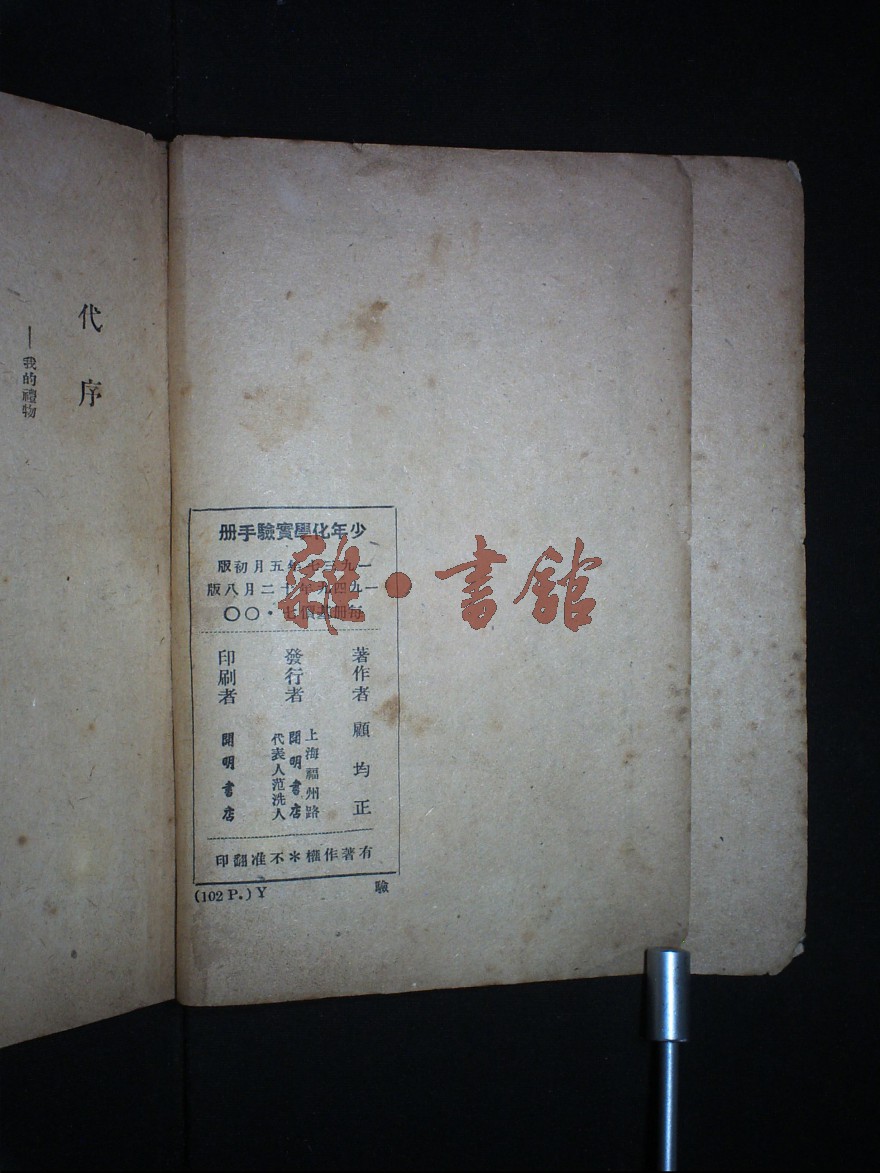 少年化學實驗手册
一九三七年五月初版
一九四九年十二月八版
每冊基價七・〇〇
著作者 顧均正
發行者
上海福州路
開明書店
代表人范洗人
印刷者 開明書店
有著作權＊不准翻印
驗
(102 P.) Y
代序
—我的禮物
雜・書館